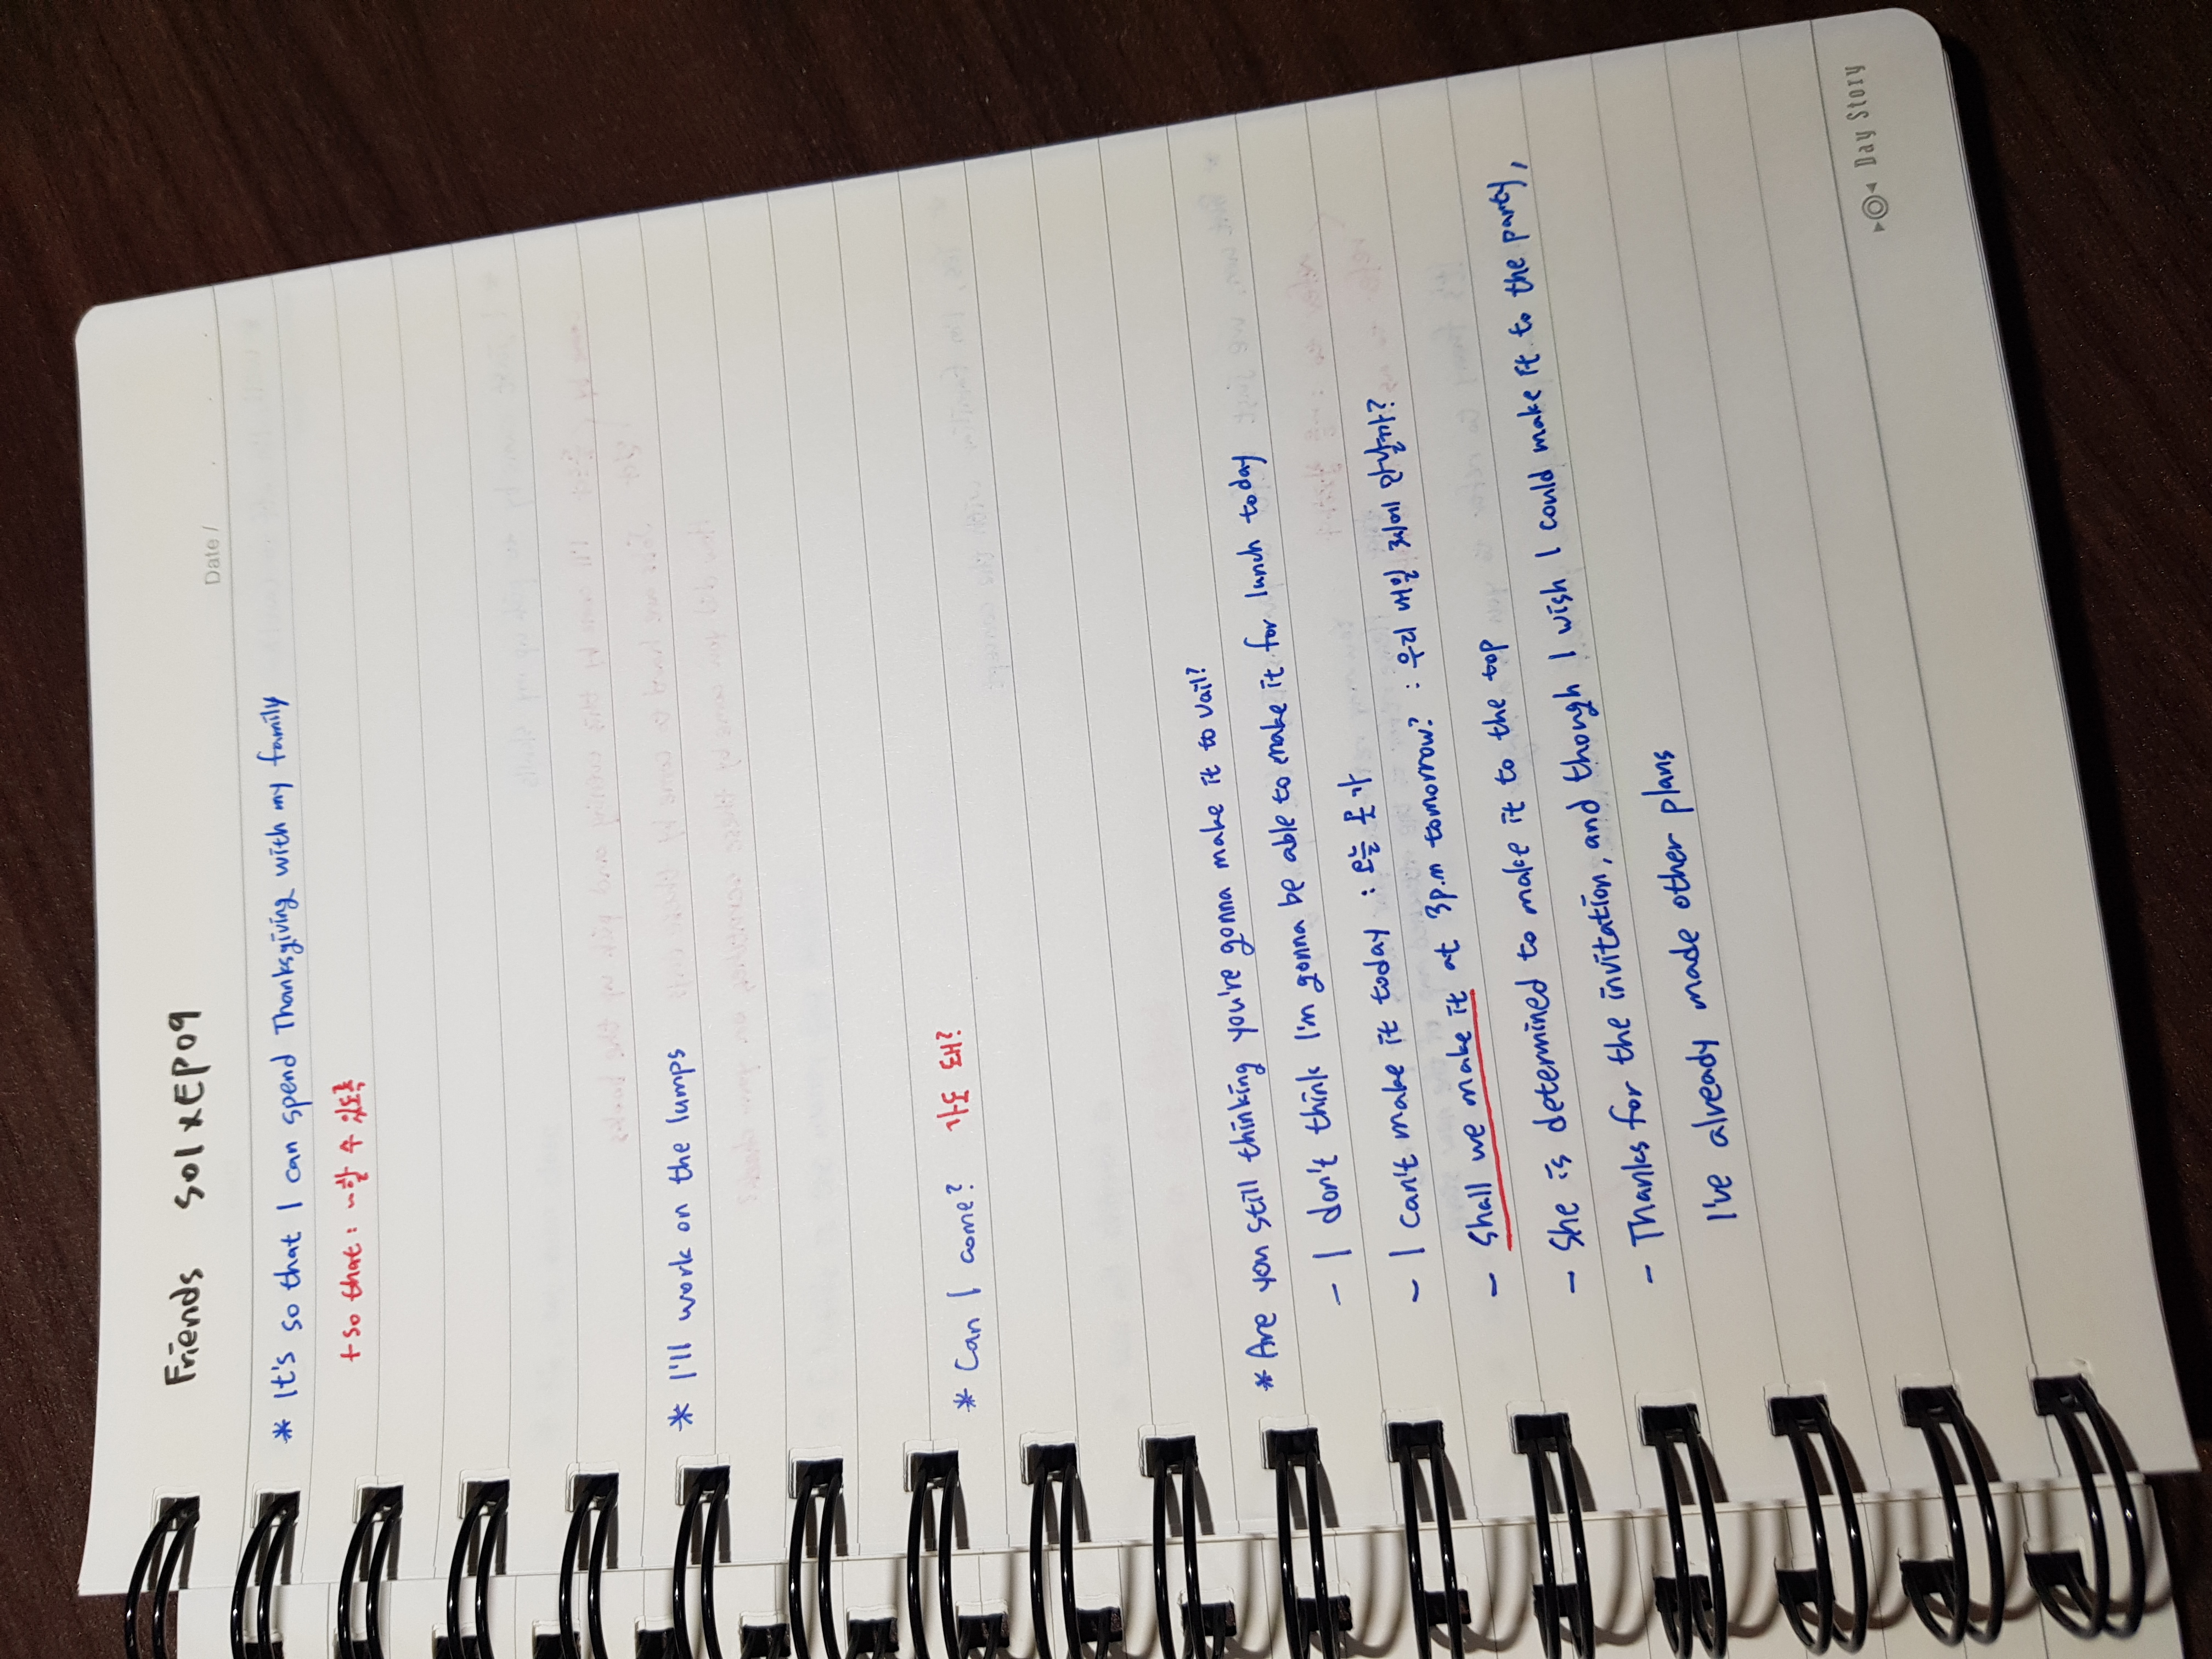 Date /
Friends S01 x EP09
* It's so that I can spend Thanksgiving with my family
+ so that : ~할 수 있도록
* I'll work on the lumps
* Can I come? 가도 돼?
* Are you still thinking you're gonna make it to vail?
- I don't think I'm gonna be able to make it for lunch today
- I can't make it today : 오늘 못 가
- Shall we make it at 3p.m tomorrow? : 우리 내일 3시에 만날까?
- She is determined to make it to the top
- Thanks for the invitation, and though I wish I could make it to the party,
I've already made other plans
Day Story